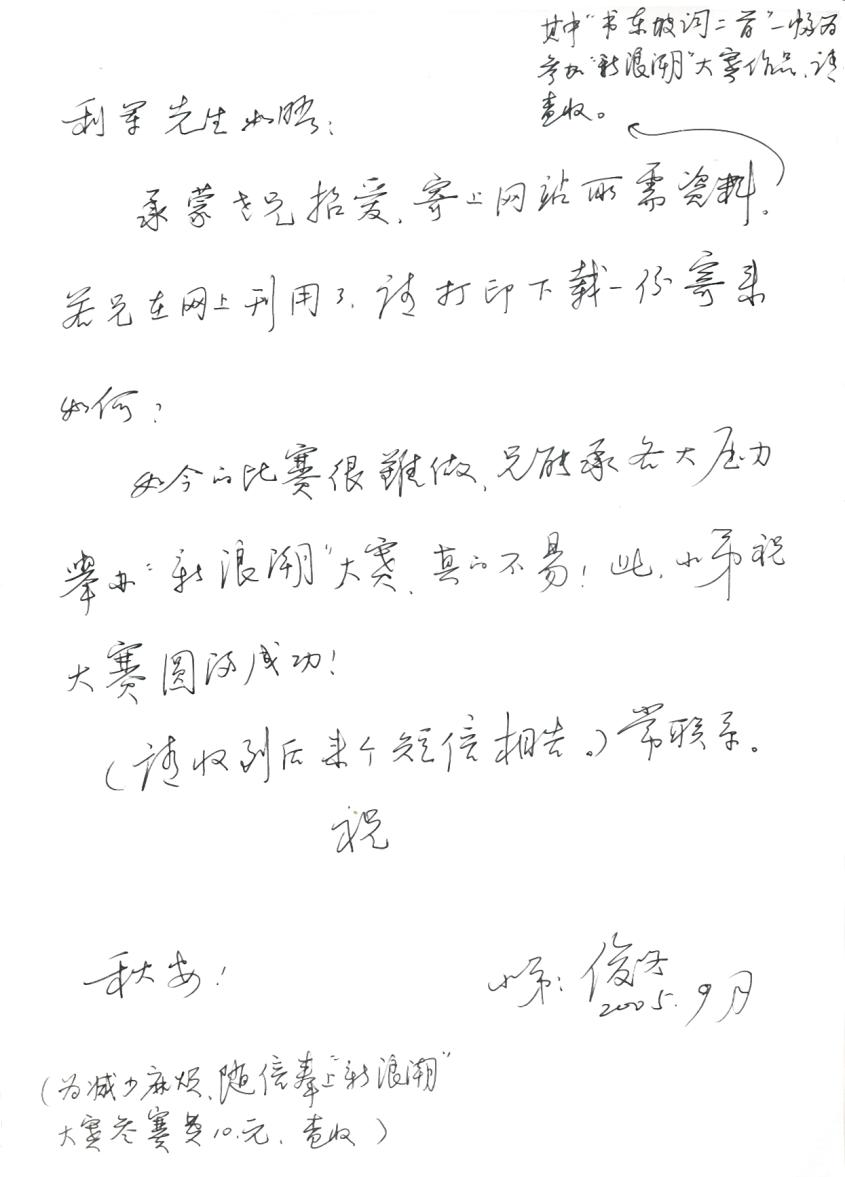 其中“书东坡词二首”一幅为
参加“新浪潮”大赛作品，请
查收。
利军先生如晤：
承蒙老兄抬爱，寄上网站所需资料。
若兄在网上刊用了，请打印下载一份寄来
如何？
如今的比赛很难做，兄能承各大压力
举办“新浪潮”大赛，真的不易！此，小弟祝
大赛圆满成功！
（请收到后来个短信相告。）常联系。
祝
秋安！
小弟：俊
2005.9月
（为减少麻烦，随信奉上“新浪潮”
大赛参赛费10.元，查收）